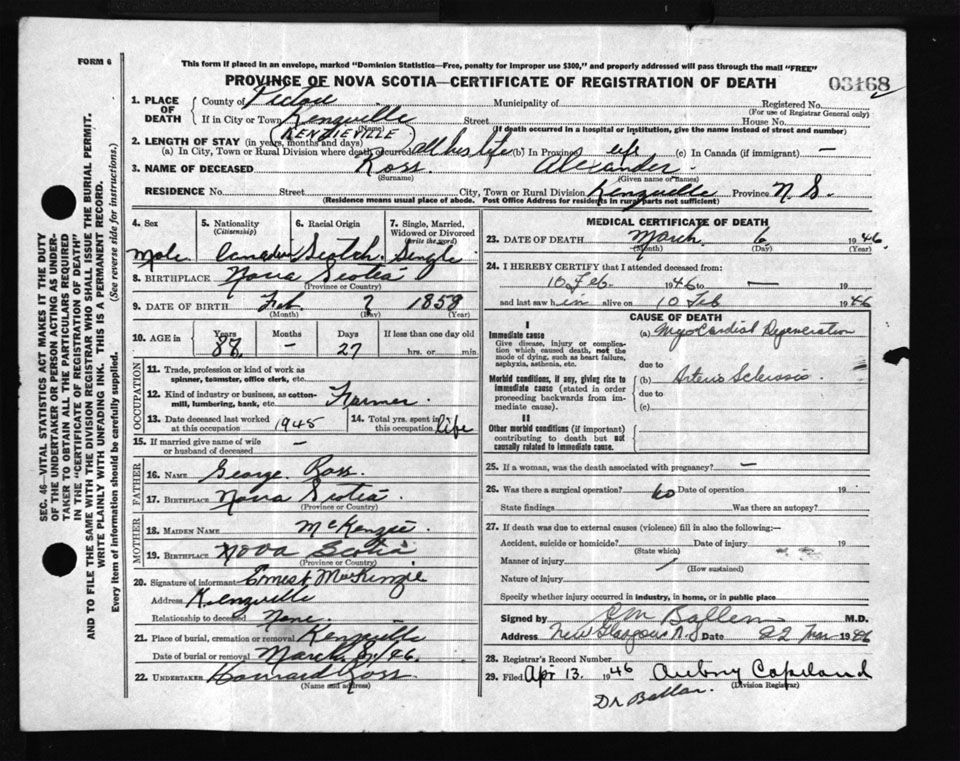 FORM 6
This form if placed in an envelope, marked "Dominion Statistics—Free, penalty for improper use $300," and properly addressed will pass through the mail "FREE"
PROVINCE OF NOVA SCOTIA—CERTIFICATE OF REGISTRATION OF DEATH
03168
1. PLACE OF DEATH
County of Pictou Municipality of Registered No.
(For use of Registrar General only)
If in City or Town Kenzieville Street House No.
(Name) (If death occurred in a hospital or institution, give the name instead of street and number)
(KENZIEVILLE)
2. LENGTH OF STAY (in years, months and days)
(a) In City, Town or Rural Division where death occurred all his life (b) In Province life (c) In Canada (if immigrant) —
3. NAME OF DECEASED Ross Alexander
(Surname) (Given name or names)
RESIDENCE No. Street City, Town or Rural Division Kenzieville Province N. S.
(Residence means usual place of abode. Post Office Address for residents in rural parts not sufficient)
SEC. 46—VITAL STATISTICS ACT MAKES IT THE DUTY
OF THE UNDERTAKER OR PERSON ACTING AS UNDER-
TAKER TO OBTAIN ALL THE PARTICULARS REQUIRED
IN THE "CERTIFICATE OF REGISTRATION OF DEATH"
AND TO FILE THE SAME WITH THE DIVISION REGISTRAR WHO SHALL ISSUE THE BURIAL PERMIT.
WRITE PLAINLY WITH UNFADING INK. THIS IS A PERMANENT RECORD.
Every item of information should be carefully supplied. (See reverse side for instructions.)
4. Sex 5. Nationality (Citizenship) 6. Racial Origin 7. Single, Married, Widowed or Divorced (write the word)
Male Canadian Scotch Single
8. BIRTHPLACE Nova Scotia
(Province or Country)
9. DATE OF BIRTH Feb 7 1858
(Month) (Day) (Year)
10. AGE in Years Months Days If less than one day old
88 — 27 hrs. or min.
OCCUPATION
11. Trade, profession or kind of work as spinner, teamster, office clerk, etc.
12. Kind of industry or business, as cotton-mill, lumbering, bank, etc. Farmer
13. Date deceased last worked at this occupation 1945 14. Total yrs. spent in this occupation life
15. If married give name of wife or husband of deceased —
FATHER
16. NAME George Ross.
17. BIRTHPLACE Nova Scotia
(Province or Country)
MOTHER
18. MAIDEN NAME McKenzie.
19. BIRTHPLACE Nova Scotia
(Province or Country)
20. Signature of informant Ernest MacKenzie
Address Kenzieville
Relationship to deceased None.
21. Place of burial, cremation or removal Kenzieville
Date of burial or removal March 8/46.
22. UNDERTAKER Ross
(Name and address)
MEDICAL CERTIFICATE OF DEATH
23. DATE OF DEATH March 6 1946
(Month) (Day) (Year)
24. I HEREBY CERTIFY that I attended deceased from:
10 Feb. 1946 to —
and last saw him alive on 10 Feb 1946
CAUSE OF DEATH
I
Immediate cause
Give disease, injury or complication which caused death, not the mode of dying, such as heart failure, asphyxia, asthenia, etc.
(a) Myocardial Degeneration
due to
Morbid conditions, if any, giving rise to immediate cause (stated in order proceeding backwards from immediate cause).
(b) Arterio Sclerosis
due to
(c)
II
Other morbid conditions (if important) contributing to death but not causally related to immediate cause.
25. If a woman, was the death associated with pregnancy? —
26. Was there a surgical operation? no Date of operation 19
State findings Was there an autopsy?
27. If death was due to external causes (violence) fill in also the following:—
Accident, suicide or homicide? Date of injury 19
(State which)
Manner of injury
(How sustained)
Nature of injury
Specify whether injury occurred in industry, in home, or in public place
Signed by M.D.
Address New Glasgow N.S Date 22 Mar 1946
28. Registrar's Record Number
29. Filed Apr 13. 1946 Aubrey Copeland
(Division Registrar)
Dr Ballam.